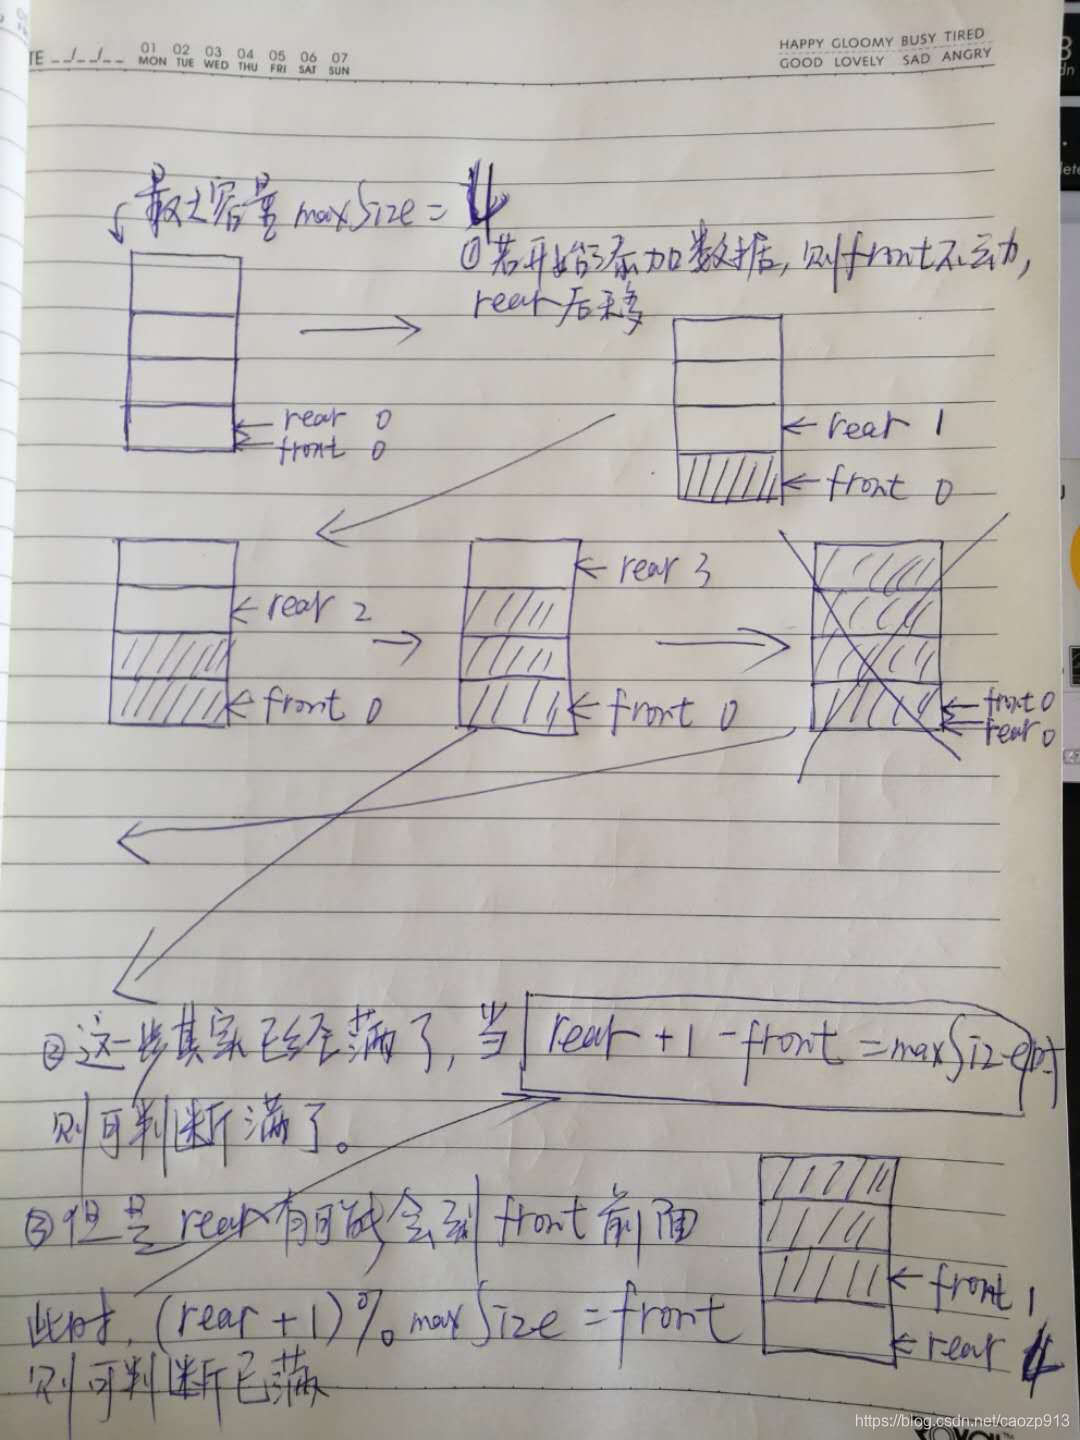 TE __/__/__ 01 02 03 04 05 06 07
MON TUE WED THU FRI SAT SUN
HAPPY GLOOMY BUSY TIRED
GOOD LOVELY SAD ANGRY
最大容量 maxSize = 4
①若开始添加数据,则front不动,
rear后移
rear 0
front 0
rear 1
front 0
rear 2
front 0
rear 3
front 0
front 0
rear 0
②这一步其实已经满了,当 rear + 1 - front = maxSize时
则可判断满了。
③但是 rear有可能会到front前面
此时,(rear + 1) % maxSize = front
则可判断已满
front 1
rear 4
https://blog.csdn.net/caozp913